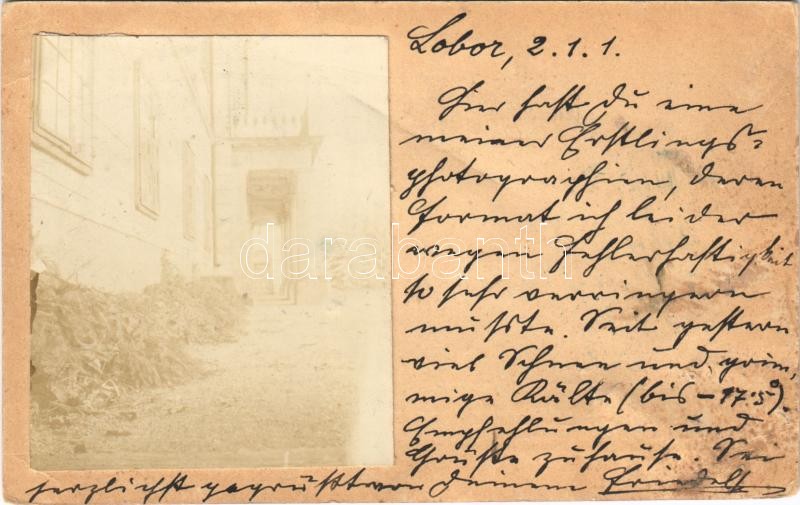 Lobor, 2.1.1.
Hier hast du eine
meiner Erstlings-
photographien, deren
Format ich leider
wegen Fehlerhaftigkeit
so sehr verringern
musste. Seit gestern
viel Schnee und grim,
mige Kälte (bis -17.5°).
Empfehlungen und
Grüsse zuhause. Sei
herzlichst gegrüsst von deinem
darabanth